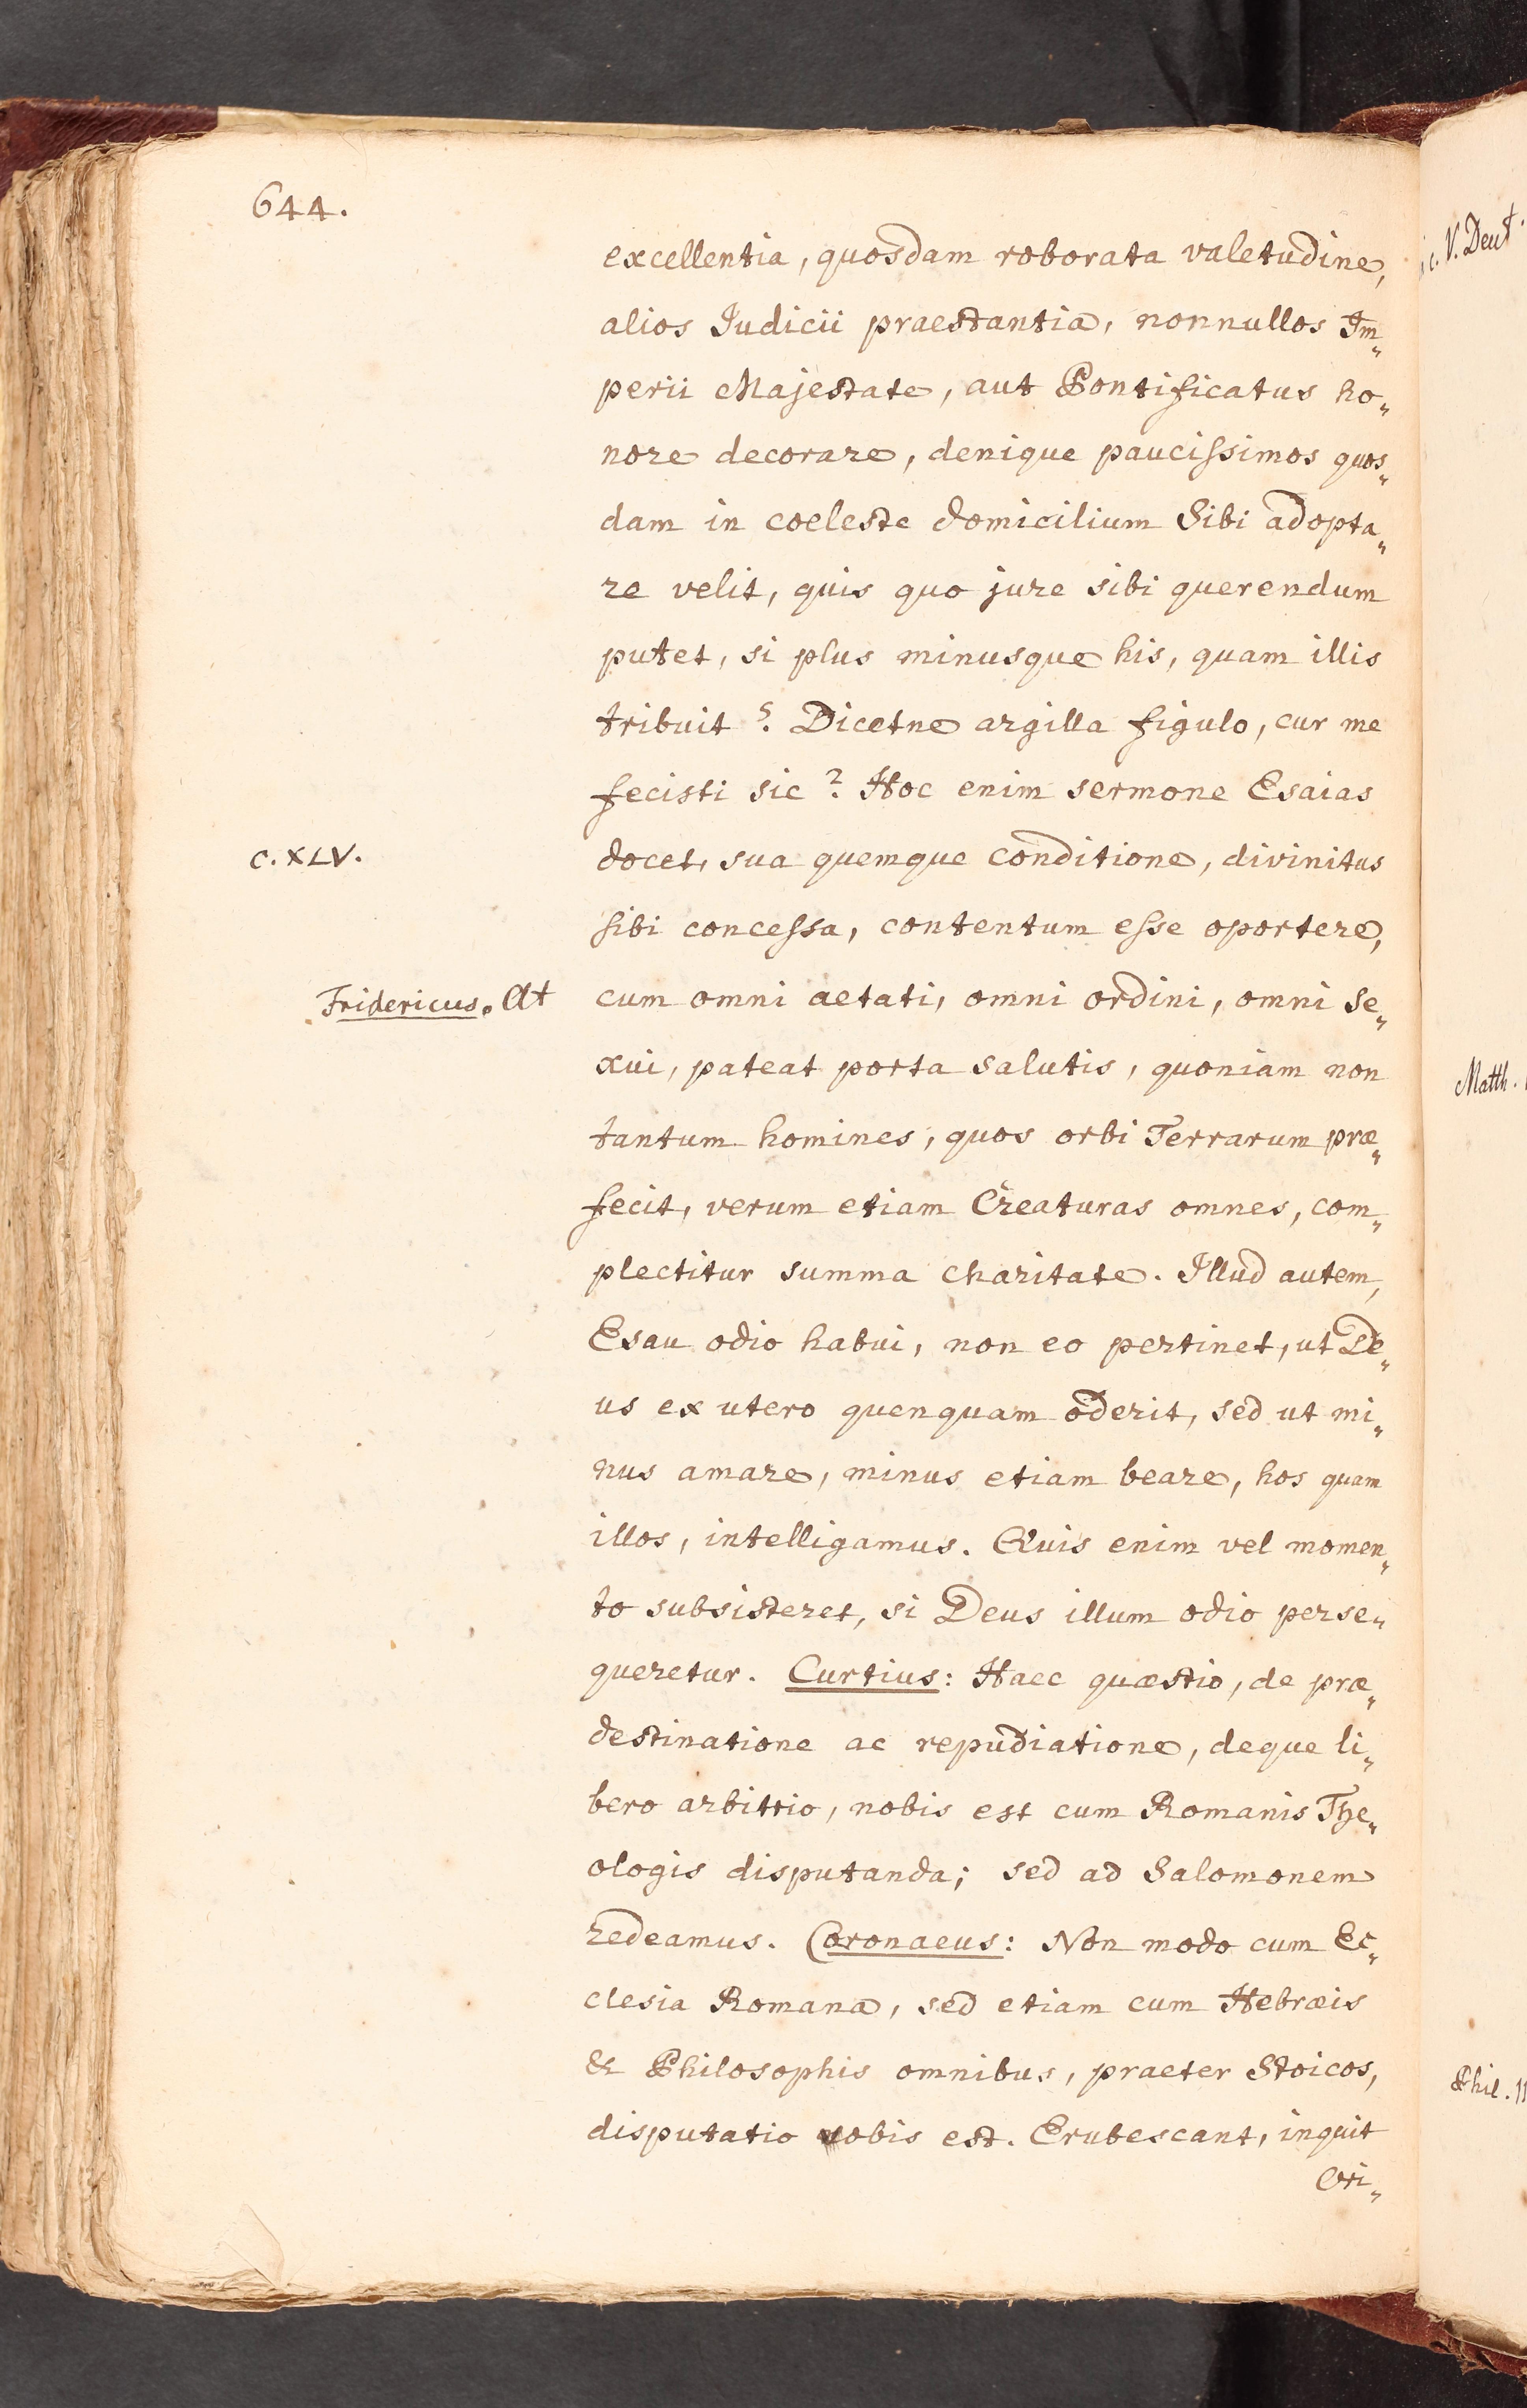 644.
excellentia, quosdam roborata valetudine,
alios Judicii praestantia, nonnullos Im„
perii Majestate, aut Pontificatus ho„
nore decorare, denique paucissimos quos„
dam in coeleste domicilium Sibi adopta„
re velit, quis quo jure sibi querendum
putet, si plus minusque his, quam illis
tribuit? Dicetne argilla figulo, cur me
fecisti sic? Hoc enim sermone Esaias
c. XLV. docet, sua quemque conditione, divinitus
sibi concessa, contentum esse oportere,
Fridericus. At cum omni aetati, omni ordini, omni se„
xui, pateat porta salutis, quoniam non
tantum homines, quos orbi Terrarum præ„
fecit, verum etiam Creaturas omnes, com„
plectitur summa charitate. Illud autem,
Esau odio habui, non eo pertinet, ut De„
us ex utero quenquam oderit, sed ut mi„
nus amare, minus etiam beare, hos quam
illos, intelligamus. Quis enim vel momen„
to subsisteret, si Deus illum odio perse„
queretur. Curtius: Haec quæstio, de præ„
destinatione ac repudiatione, deque li„
bero arbitrio, nobis est cum Romanis The„
ologis disputanda; sed ad Salomonem
redeamus. Coronaeus: Non modo cum Ec„
clesia Romana, sed etiam cum Hebræis
& Philosophis omnibus, praeter Stoicos,
disputatio vobis est. Erubescant, inquit
Ori„
c. V. Deut.
Matth.
Phil. 11